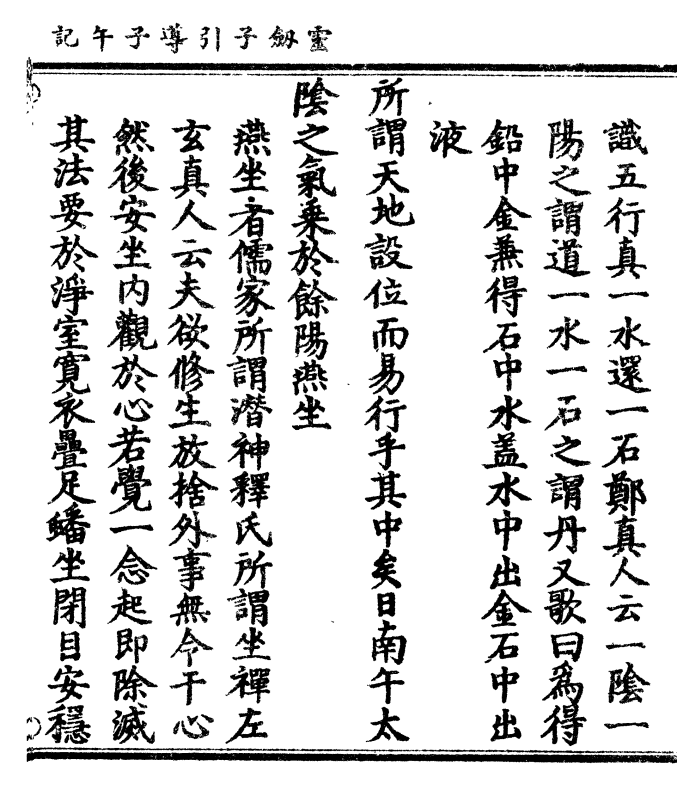 靈劔子引導子午記
識五行真一水還一石鄭真人云一隂一
陽之謂道一水一石之謂丹又歌曰爲得
鉛中金兼得石中水盖水中出金石中出
液
所謂天地設位而易行乎其中矣日南午太
隂之氣乗於餘陽燕坐
燕坐者儒家所謂潜神釋氏所謂坐禪左
玄真人云夫欲修生放捨外事無令干心
然後安坐内觀於心若覺一念起即除滅
其法要於淨室寬衣疊足蟠坐閉目安穩